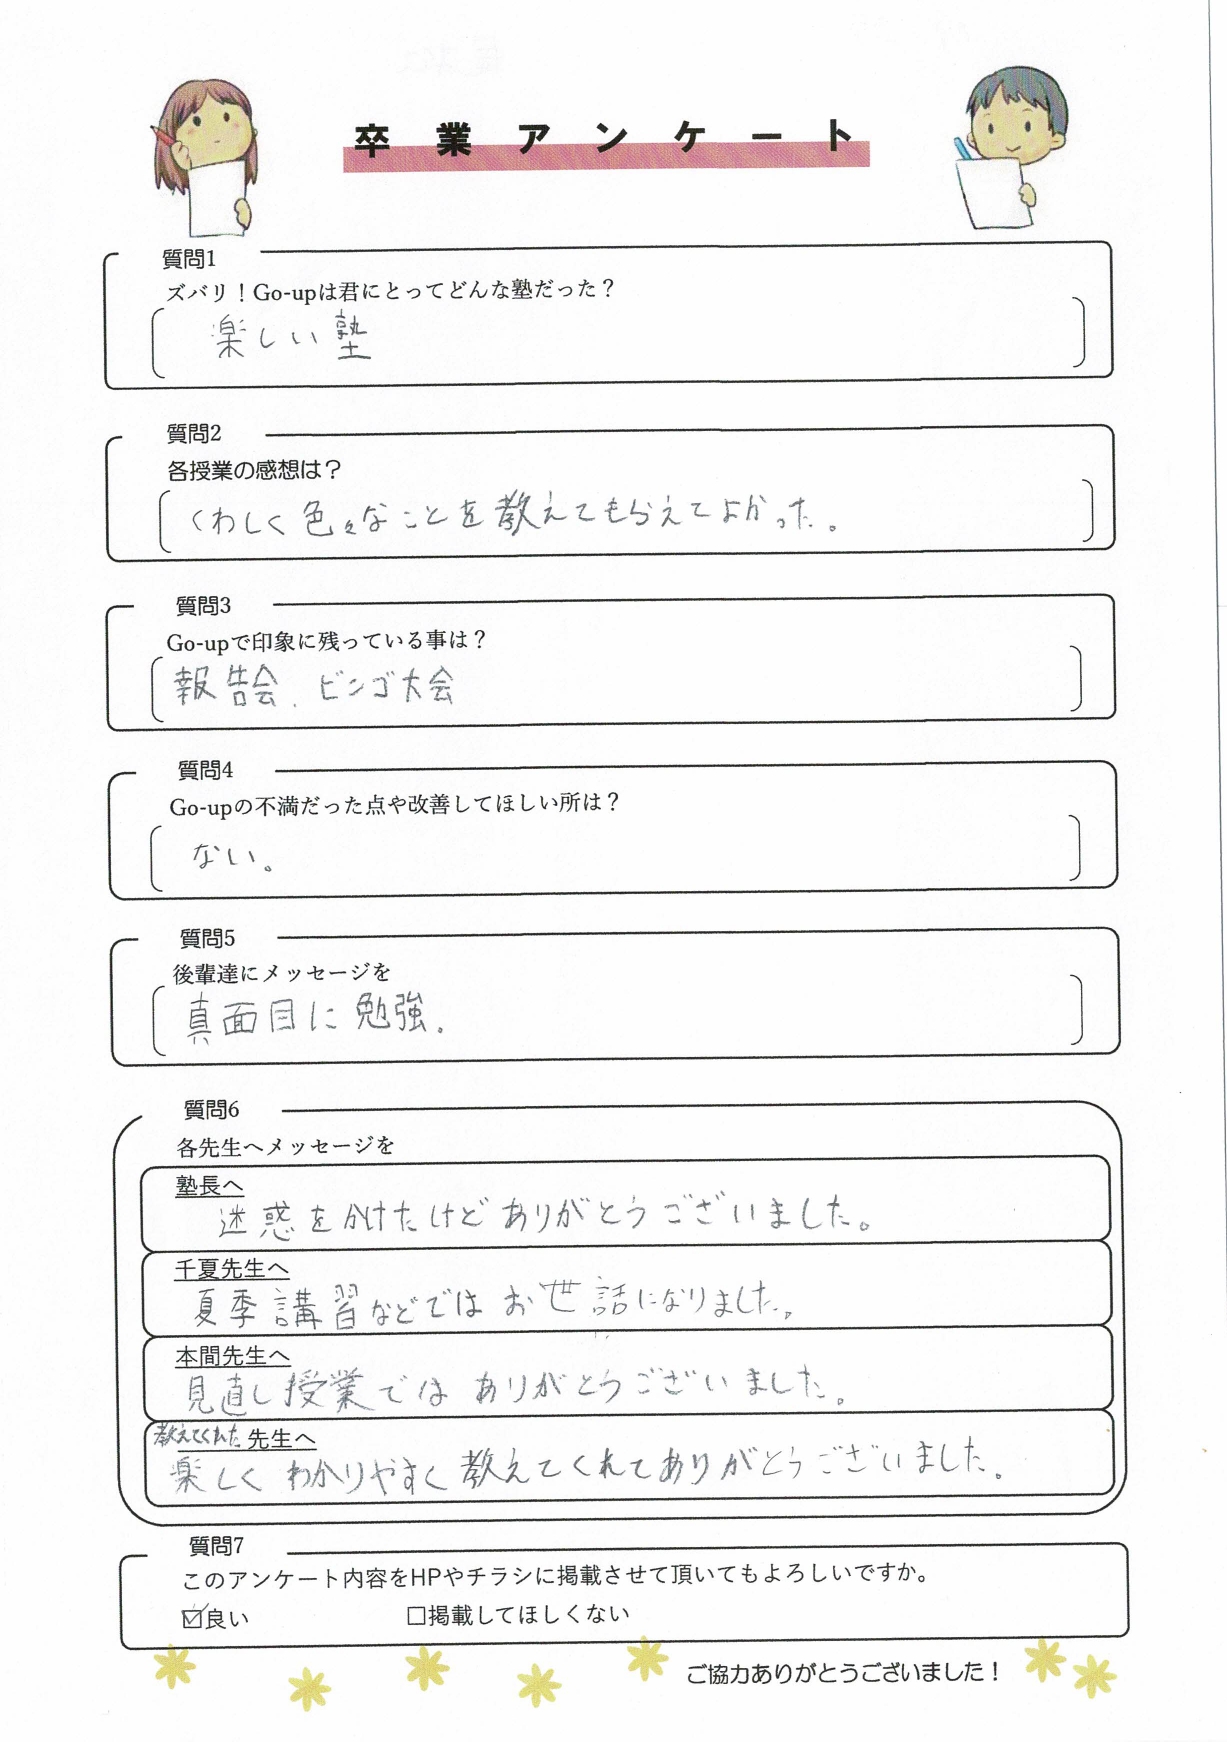 卒業アンケート
質問1
ズバリ！Go-upは君にとってどんな塾だった？
楽しい塾
質問2
各授業の感想は？
くわしく色々なことを教えてもらえてよかった。
質問3
Go-upで印象に残っている事は？
報告会、ビンゴ大会
質問4
Go-upの不満だった点や改善してほしい所は？
ない。
質問5
後輩達にメッセージを
真面目に勉強。
質問6
各先生へメッセージを
塾長へ
迷惑をかけたけどありがとうございました。
千夏先生へ
夏季講習などではお世話になりました。
本間先生へ
見直し授業ではありがとうございました。
教えてくれた先生へ
楽しくわかりやすく教えてくれてありがとうございました。
質問7
このアンケート内容をHPやチラシに掲載させて頂いてもよろしいですか。
☑良い □掲載してほしくない
ご協力ありがとうございました！